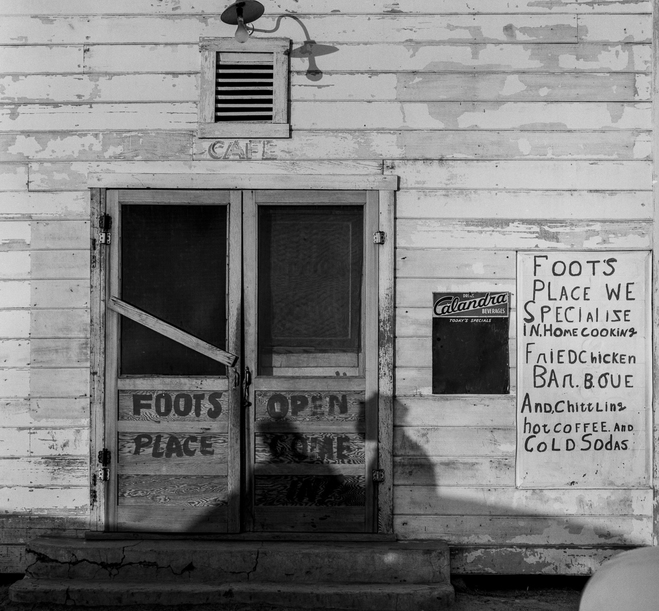 CAFE
FOOTS
PLACE
OPEN
COME
IN
Calandra
BEVERAGES
TODAY'S SPECIALS
FOOT'S
PLACE WE
SPECIALISE
IN.HOME COOKING
FRIEDChicken
BAR.B.QUE
AND.Chittlins
hot COFFEE. AND
COLD SOdAS